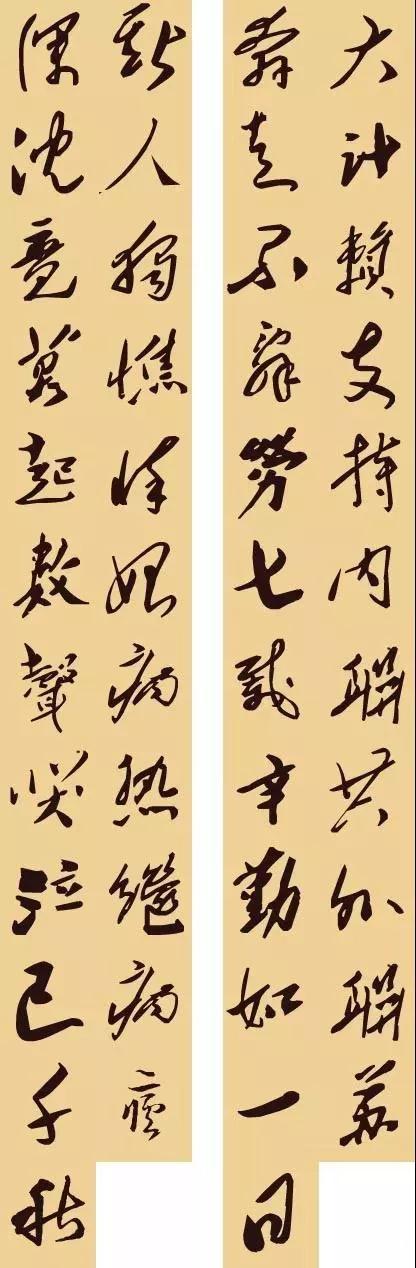 大計賴支持內聯共外聯蘇
奔走不辭勞七載辛勤如一日
斯人獨憔悴始病热繼病瘧
深沈竟莫起数聲哭泣已千秋